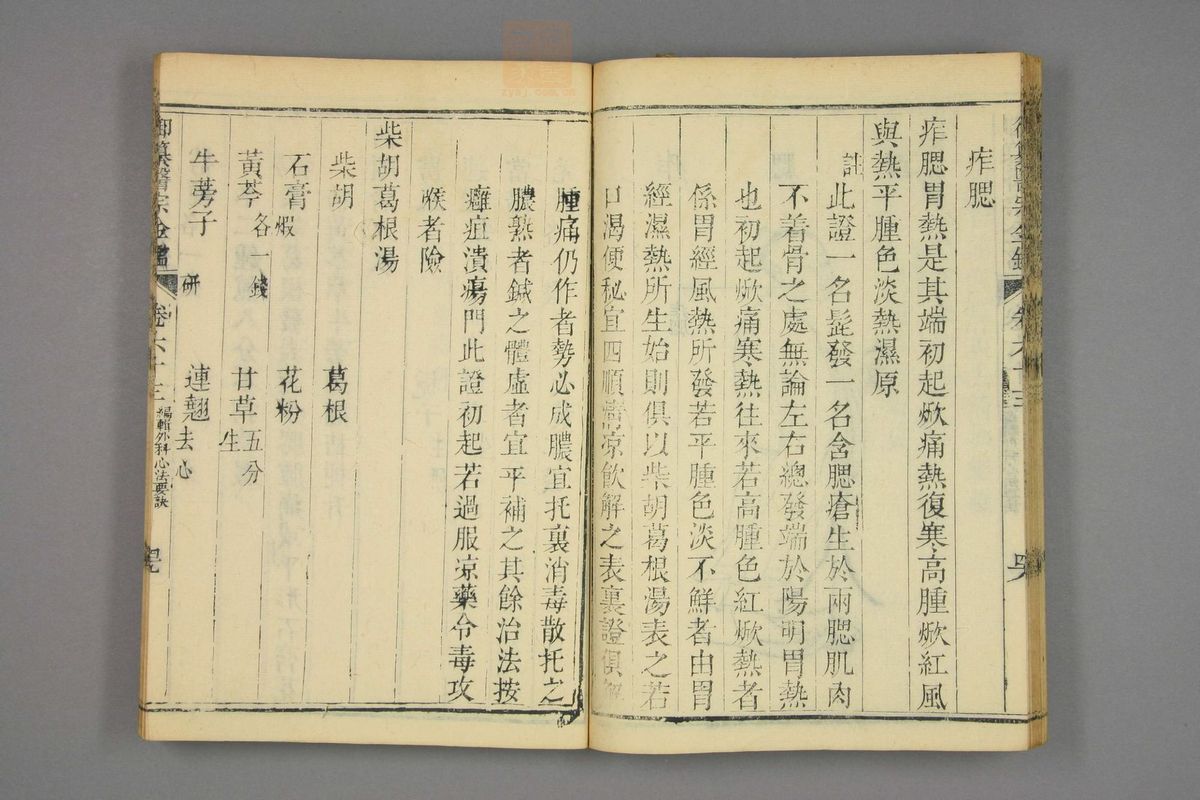 痄腮
痄腮胃熱是其端初起焮痛熱復寒高腫焮紅風
與熱平腫色淡熱濕原
註此證一名髭發一名含腮瘡生於兩腮肌肉
不着骨之處無論左右總發端於陽明胃熱
也初起焮痛寒熱往來若高腫色紅焮熱者
係胃經風熱所發若平腫色淡不鮮者由胃
經濕熱所生始則俱以柴胡葛根湯表之若
口渴便秘宜四順清凉飲解之表裏證俱解
腫痛仍作者勢必成膿宜托裏消毒散托之
膿熟者鍼之體虛者宜平補之其餘治法按
癰疽潰瘍門此證初起若過服凉藥令毒攻
喉者險
柴胡葛根湯
柴胡 葛根
石膏煅 花粉
黃芩各一錢 甘草生五分
牛蒡子研 連翹去心
御纂醫宗金鑑 卷六十三 編輯外科心法要訣